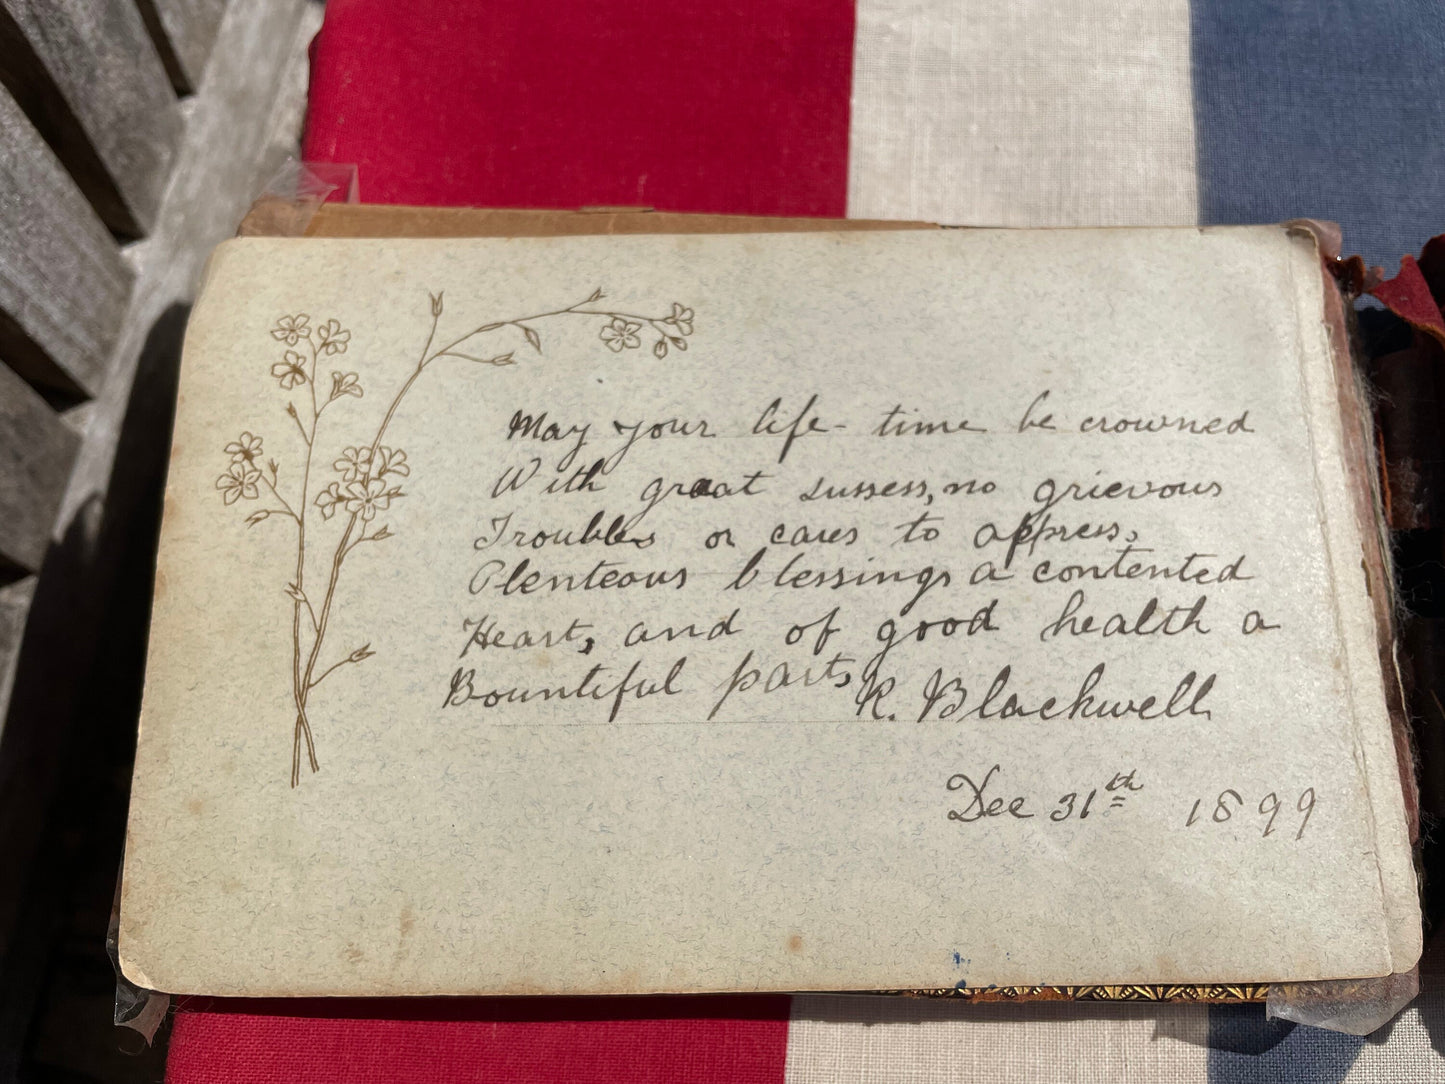 May your life-time be crowned
With great sussess, no grievous
Troubles or cares to appress,
Plenteous blessings a contented
Heart, and of good health a
Bountiful parts,
R. Blackwell
Dec 31th 1899